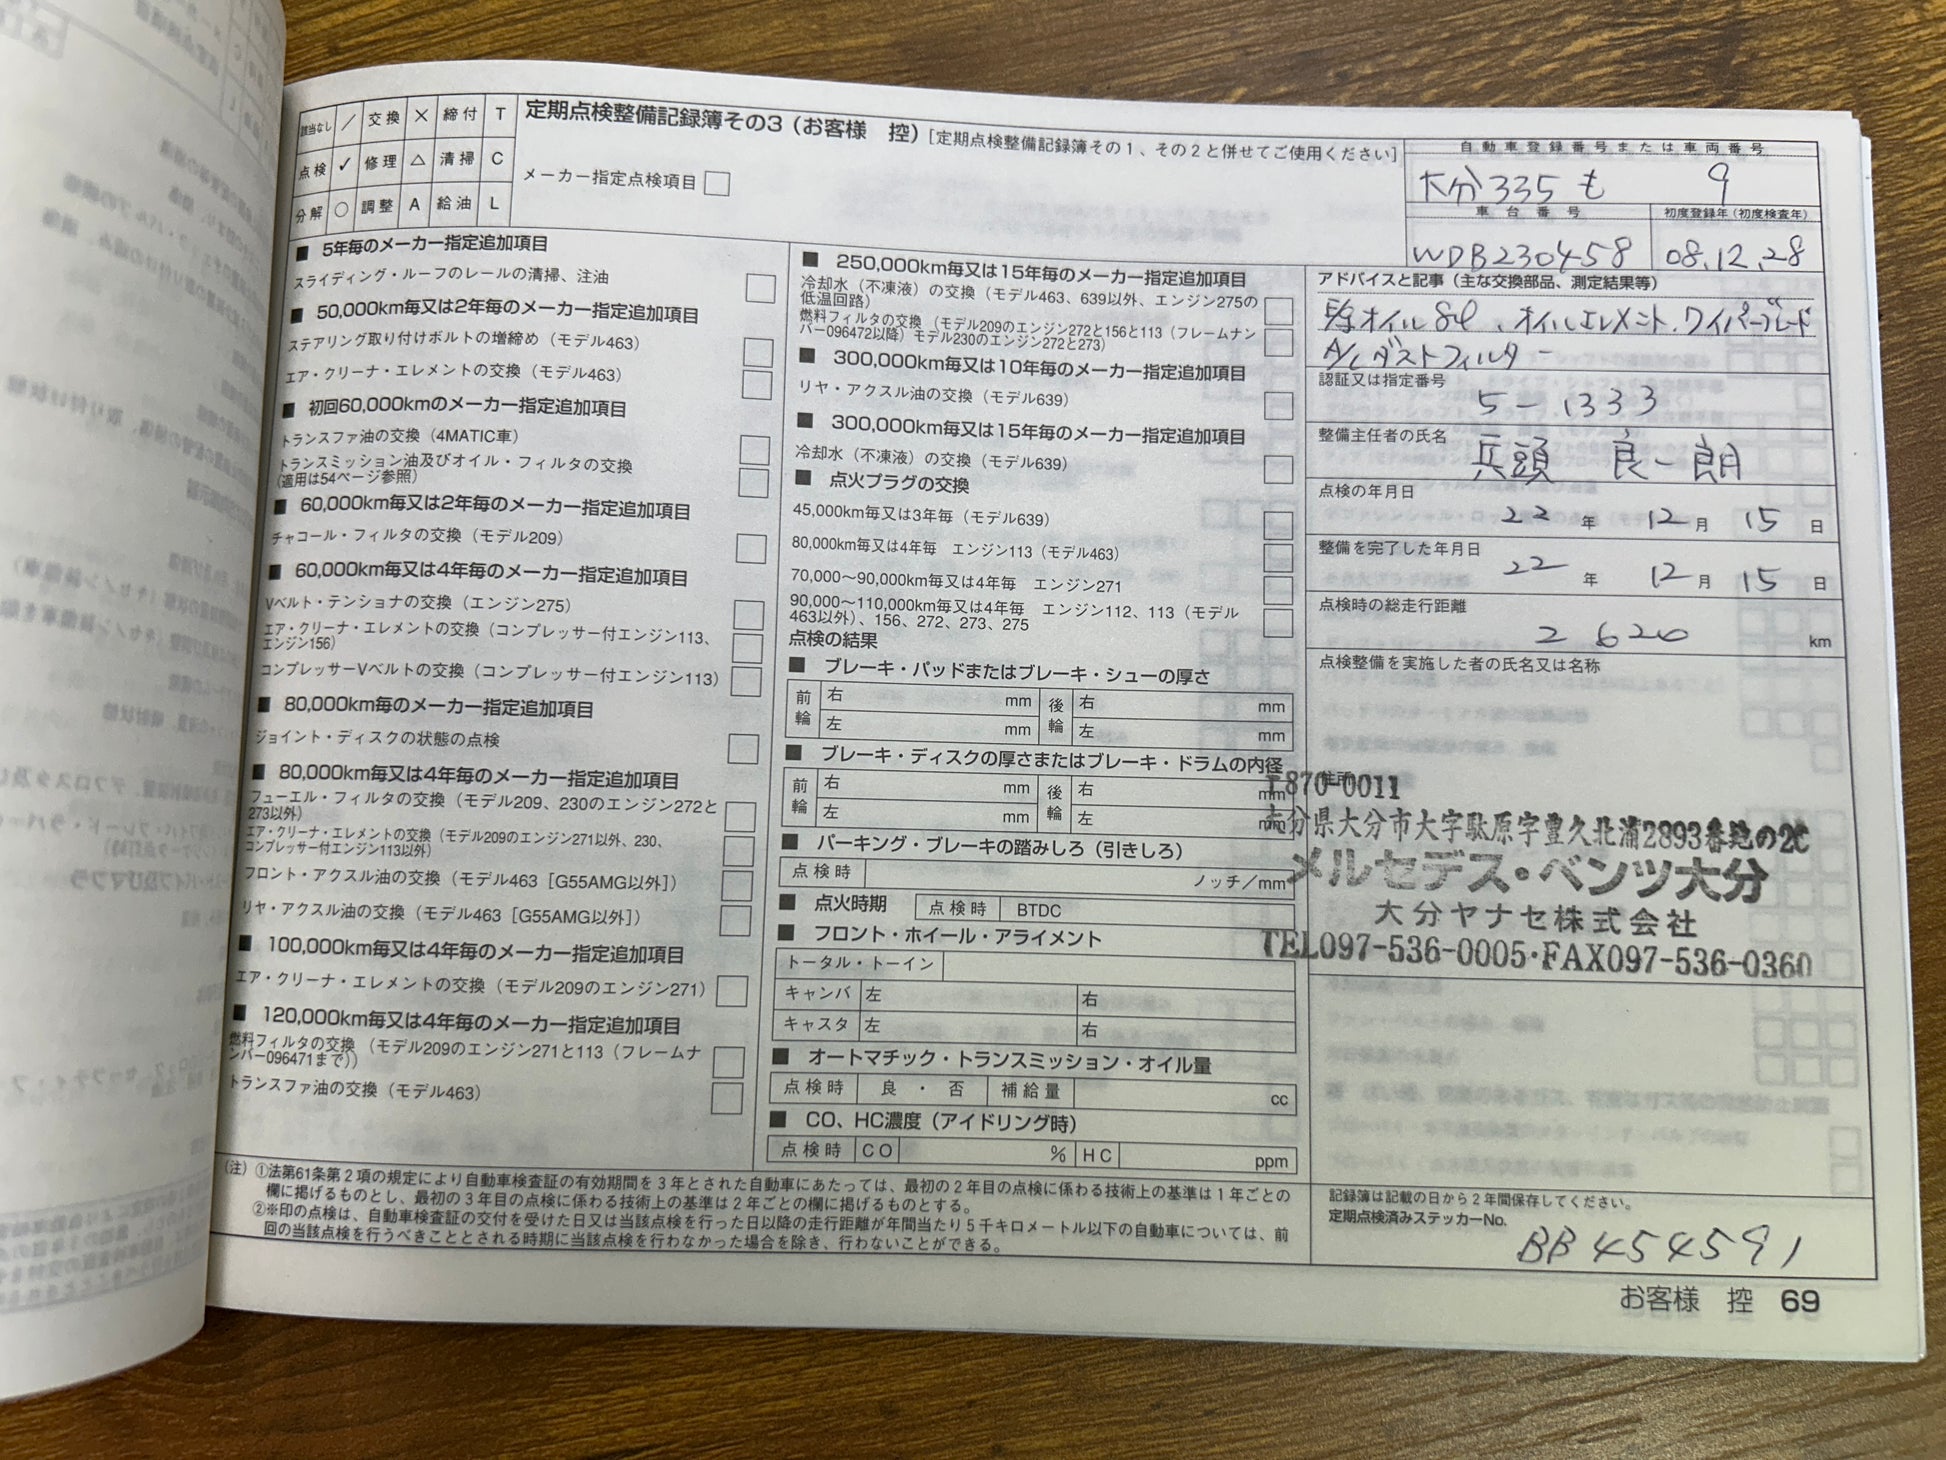 該当なし ／ 交換 × 締付 T
点検 ✓ 修理 △ 清掃 C
分解 ○ 調整 A 給油 L
定期点検整備記録簿その3（お客様　控）[定期点検整備記録簿その1、その2と併せてご使用ください]
メーカー指定点検項目
自動車登録番号または車両番号
大分 335 も 9
車台番号
WDB230458
初度登録年（初度検査年）
08.12.28
■ 5年毎のメーカー指定追加項目
スライディング・ルーフのレールの清掃、注油
■ 50,000km毎又は2年毎のメーカー指定追加項目
ステアリング取り付けボルトの増締め（モデル463）
エア・クリーナ・エレメントの交換（モデル463）
■ 初回60,000kmのメーカー指定追加項目
トランスファ油の交換（4MATIC車）
トランスミッション油及びオイル・フィルタの交換
（適用は54ページ参照）
■ 60,000km毎又は2年毎のメーカー指定追加項目
チャコール・フィルタの交換（モデル209）
■ 60,000km毎又は4年毎のメーカー指定追加項目
Vベルト・テンショナの交換（エンジン275）
エア・クリーナ・エレメントの交換（コンプレッサー付エンジン113、
エンジン156）
コンプレッサーVベルトの交換（コンプレッサー付エンジン113）
■ 80,000km毎のメーカー指定追加項目
ジョイント・ディスクの状態の点検
■ 80,000km毎又は4年毎のメーカー指定追加項目
フューエル・フィルタの交換（モデル209、230のエンジン272と
273以外）
エア・クリーナ・エレメントの交換（モデル209のエンジン271以外、230、
コンプレッサー付エンジン113以外）
フロント・アクスル油の交換（モデル463［G55AMG以外］）
リヤ・アクスル油の交換（モデル463［G55AMG以外］）
■ 100,000km毎又は4年毎のメーカー指定追加項目
エア・クリーナ・エレメントの交換（モデル209のエンジン271）
■ 120,000km毎又は4年毎のメーカー指定追加項目
燃料フィルタの交換（モデル209のエンジン271と113（フレームナ
ンバー096471まで））
トランスファ油の交換（モデル463）
■ 250,000km毎又は15年毎のメーカー指定追加項目
冷却水（不凍液）の交換（モデル463、639以外、エンジン275の
低温回路）
燃料フィルタの交換（モデル209のエンジン272と156と113（フレームナン
バー096472以降）モデル230のエンジン272と273）
■ 300,000km毎又は10年毎のメーカー指定追加項目
リヤ・アクスル油の交換（モデル639）
■ 300,000km毎又は15年毎のメーカー指定追加項目
冷却水（不凍液）の交換（モデル639）
■ 点火プラグの交換
45,000km毎又は3年毎（モデル639）
80,000km毎又は4年毎　エンジン113（モデル463）
70,000〜90,000km毎又は4年毎　エンジン271
90,000〜110,000km毎又は4年毎　エンジン112、113（モデル
463以外）、156、272、273、275
点検の結果
■ ブレーキ・パッドまたはブレーキ・シューの厚さ
前輪 右 mm 後輪 右 mm
左 mm 左 mm
■ ブレーキ・ディスクの厚さまたはブレーキ・ドラムの内径
前輪 右 mm 後輪 右 mm
左 mm 左 mm
■ パーキング・ブレーキの踏みしろ（引きしろ）
点検時 ノッチ／mm
■ 点火時期 点検時 BTDC
■ フロント・ホイール・アライメント
トータル・トーイン
キャンバ 左 右
キャスタ 左 右
■ オートマチック・トランスミッション・オイル量
点検時 良・否 補給量 cc
■ CO、HC濃度（アイドリング時）
点検時 CO % HC ppm
アドバイスと記事（主な交換部品、測定結果等）
オイル 8ℓ、オイルエレメント、ワイパーブレード
A/C ダストフィルター
認証又は指定番号
5-1333
整備主任者の氏名
兵頭 良一朗
点検の年月日
22 年 12 月 15 日
整備を完了した年月日
22 年 12 月 15 日
点検時の総走行距離
2620 km
点検整備を実施した者の氏名又は名称
住所
〒870-0011
大分県大分市大字駄原字豊久北浦2893番地の20
メルセデス・ベンツ大分
大分ヤナセ株式会社
TEL097-536-0005・FAX097-536-0360
（注）①法第61条第2項の規定により自動車検査証の有効期間を3年とされた自動車にあたっては、最初の2年目の点検に係わる技術上の基準は1年ごとの
欄に掲げるものとし、最初の3年目の点検に係わる技術上の基準は2年ごとの欄に掲げるものとする。
②※印の点検は、自動車検査証の交付を受けた日又は当該点検を行った日以降の走行距離が年間当たり5千キロメートル以下の自動車については、前
回の当該点検を行うべきこととされる時期に当該点検を行わなかった場合を除き、行わないことができる。
記録簿は記載の日から2年間保存してください。
定期点検済みステッカーNo.
BB 454591
お客様　控 69